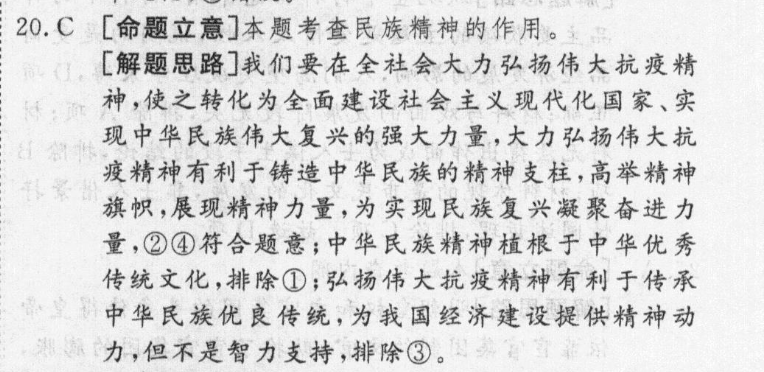 20.C [命题立意]本题考查民族精神的作用。
[解题思路]我们要在全社会大力弘扬伟大抗疫精
神,使之转化为全面建设社会主义现代化国家、实
现中华民族伟大复兴的强大力量,大力弘扬伟大抗
疫精神有利于铸造中华民族的精神支柱,高举精神
旗帜,展现精神力量,为实现民族复兴凝聚奋进力
量,②④符合题意;中华民族精神植根于中华优秀
传统文化,排除①;弘扬伟大抗疫精神有利于传承
中华民族优良传统,为我国经济建设提供精神动
力,但不是智力支持,排除③。